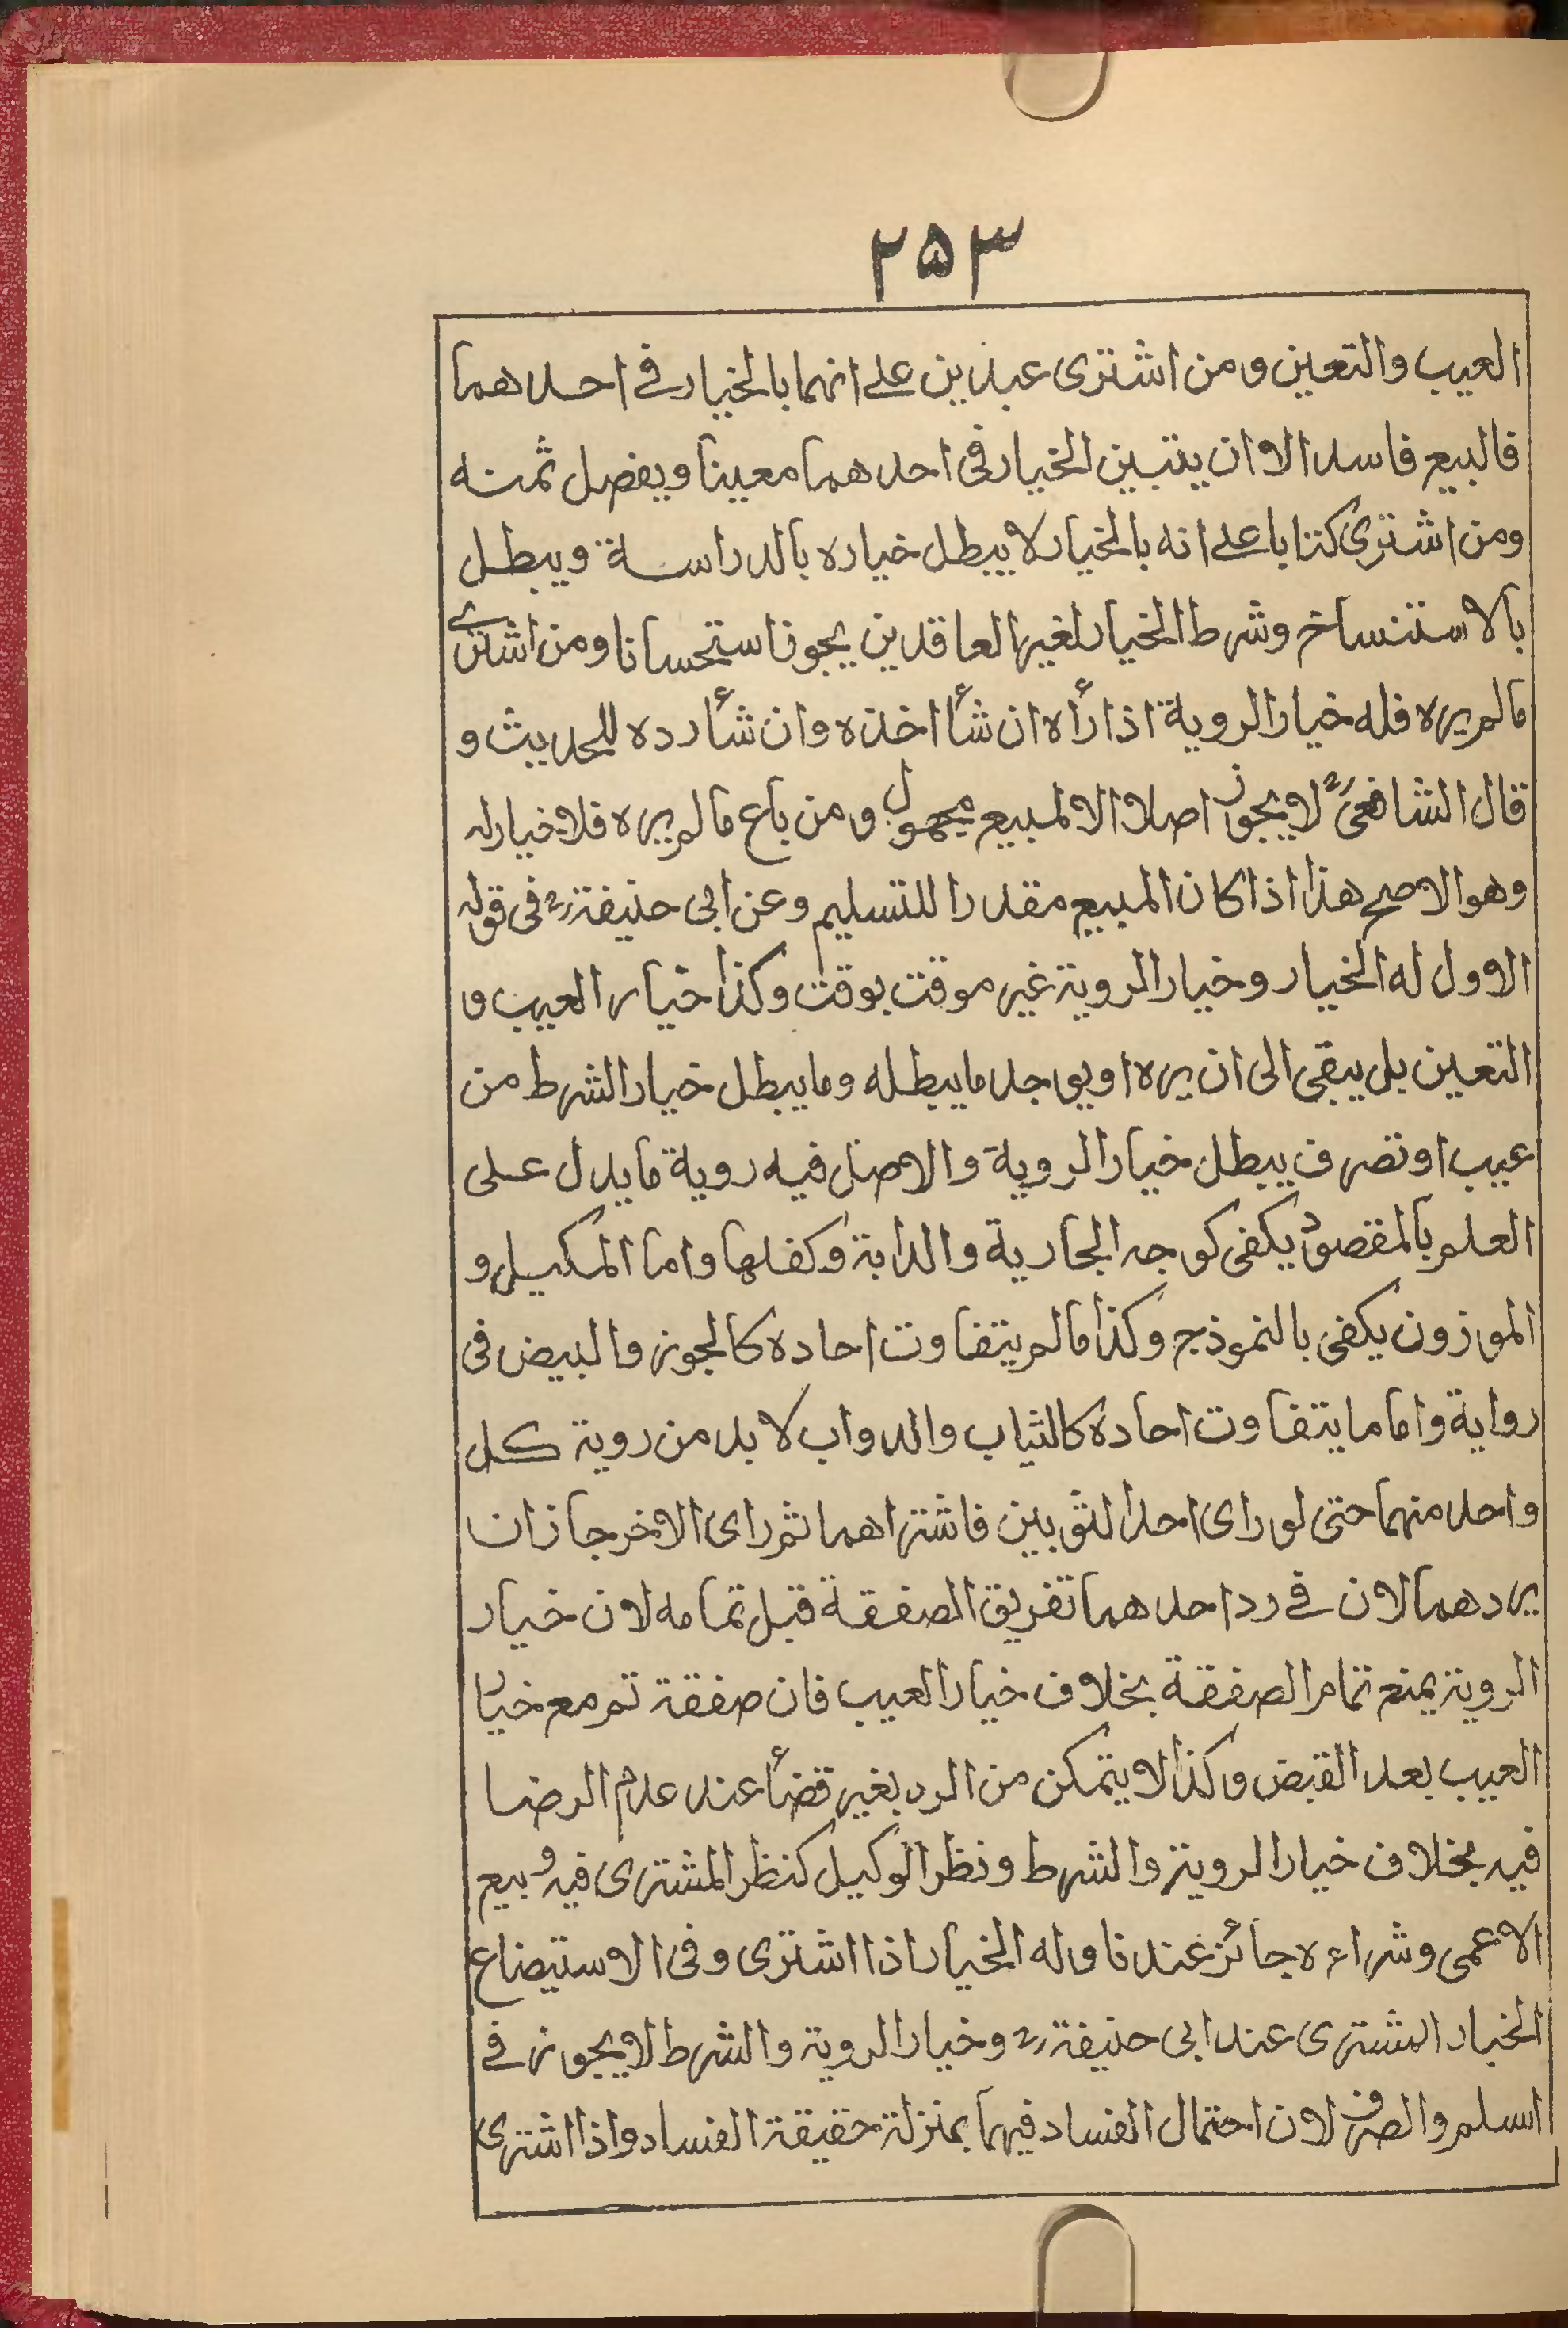 ۲۵۳
العيب والتعين ومن اشترى عبدين على انهما بالخيار فى احدهما
فالبيع فاسد الا ان يتبين الخيار فى احدهما معينا ويفصل ثمنه
ومن اشترى كتابا على انه بالخيار لا يبطل خياره بالدراسة ويبطل
بالاستنساخ وشرط الخيار لغير العاقدين يجوز استحسانا ومن اشترى
مالم يره فله خيار الروية اذا رأه ان شأ اخذه وان شأ رده للحديث و
قال الشافعىؒ لا يجوز اصلا لا لمبيع مجهول ومن باع مالم يره فلا خيار له
وهو الاصح هذا اذا كان المبيع مقدرا للتسليم وعن ابى حنيفةؒ فى قوله
الاول له الخيار وخيار الروية غير موقت بوقت وكذا خيار العيب و
التعين بل يبقى الى ان يره او يوجد ما يبطله وما يبطل خيار الشرط من
عيب او تصرف يبطل خيار الروية والاصل فيه روية ما يدل على
العلم بالمقصود يكفى كوجه الجارية والدابة وكفلها واما المكيل و
الموزون يكفى بالنموذج وكذا مالم يتفاوت احاده كالجوز والبيض فى
رواية واما ما يتفاوت احاده كالثياب والدواب لا بد من روية كل
واحد منهما حتى لو راى احد الثوبين فاشتراهما ثم راى الاخر جاز ان
يردهما لان فى رد احدهما تفريق الصفقة قبل تمامه لان خيار
الروية يمنع تمام الصفقة بخلاف خيار العيب فان صفقة تم مع خيار
العيب بعد القبض وكذا لا يتمكن من الرد بغير قضأ عند عدم الرضا
فيه بخلاف خيار الروية والشرط ونظر الوكيل كنظر المشترى فيه وبيع
الاعمى وشراءه جائز عندنا وله الخيار اذا اشترى وفى الاستيضاع
الخيار المشترى عند ابى حنيفةؒ وخيار الروية والشرط لا يجوز فى
اسلم والصرف لان احتمال الفساد فيهما بمنزلة حقيقة الفساد واذا اشترى